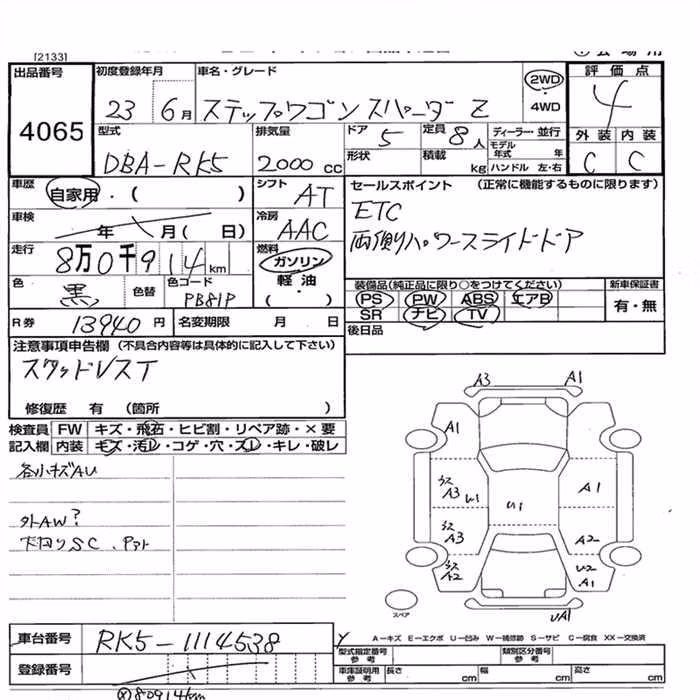 [2133]
出品番号
4065
初度登録年月
23 6月
車名・グレード
ステップワゴン スパーダ Z
2WD
4WD
評価点
4
外装 内装
C C
型式
DBA-RK5
排気量
2000 cc
ドア 5
形状
定員 8人
積載 kg
ディーラー・並行
モデル年式 年
ハンドル 左・右
車歴
自家用・( )
シフト
AT
車検
年 月( 日)
冷房
AAC
セールスポイント (正常に機能するものに限ります)
ETC
両側パワースライドドア
走行
8万0千914km
燃料
ガソリン
軽油
( )
色
黒
色替
色コード
PB81P
装備品(純正品に限り○をつけてください)
PS PW ABS エアB
SR ナビ TV
新車保証書
有・無
R券 13940円
名変期限 月 日
後日品
注意事項申告欄 (不具合内容等は具体的に記入して下さい)
スタッドレスT
修復歴 有 (箇所 )
検査員 FW キズ・飛石・ヒビ割・リペア跡・×要
記入欄 内装 キズ・汚レ・コゲ・穴・スレ・キレ・破レ
各小キズAU
外AW?
下回りSC、
A3 A1
A1
A3 U1
U1
A1
A3
A2
A2
U2
A1
UA1
スペア
A-キズ E-エクボ U-凹み W-補修跡 S-サビ C-腐食 XX-交換済
車台番号
RK5-1114538
登録番号
型式指定番号
参考
類別区分番号
参考
車庫証明用
参考
長さ cm
幅 cm
高さ cm
80914km